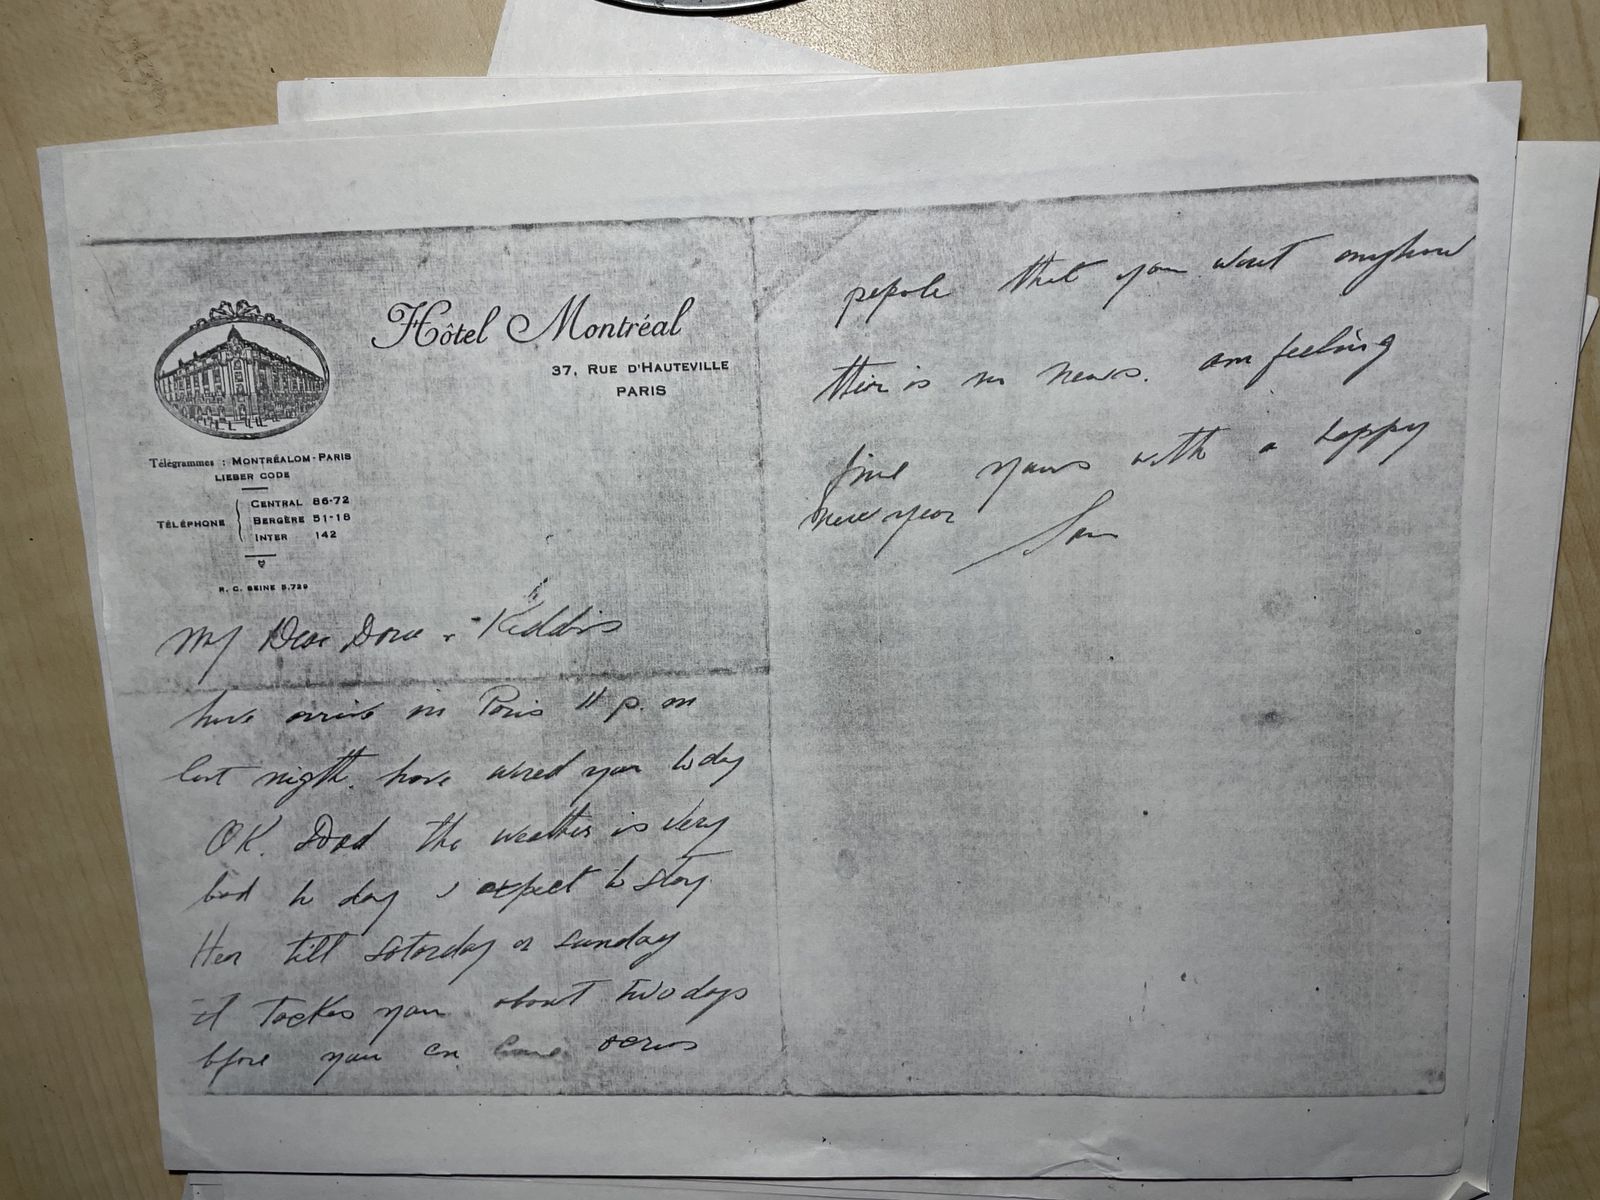 Hôtel Montréal
37, RUE D'HAUTEVILLE
PARIS
Télégrammes : MONTRÉALOM-PARIS
LIEBER CODE
TÉLÉPHONE
CENTRAL 86-72
BERGÈRE 51-18
INTER 142
R. C. SEINE 5.729
My Dear Dora & Kiddis
have arrive in Paris 11 p.m
last nigth. have wired you to day
OK. Dad the weather is very
bad to day I expect to stay
Her till Saturday or Sunday
it tackes you about two days
bfore you cn come ocros
pepole that you want anyhow
their is no news. am feeling
fine yours with a happy
new year Sam